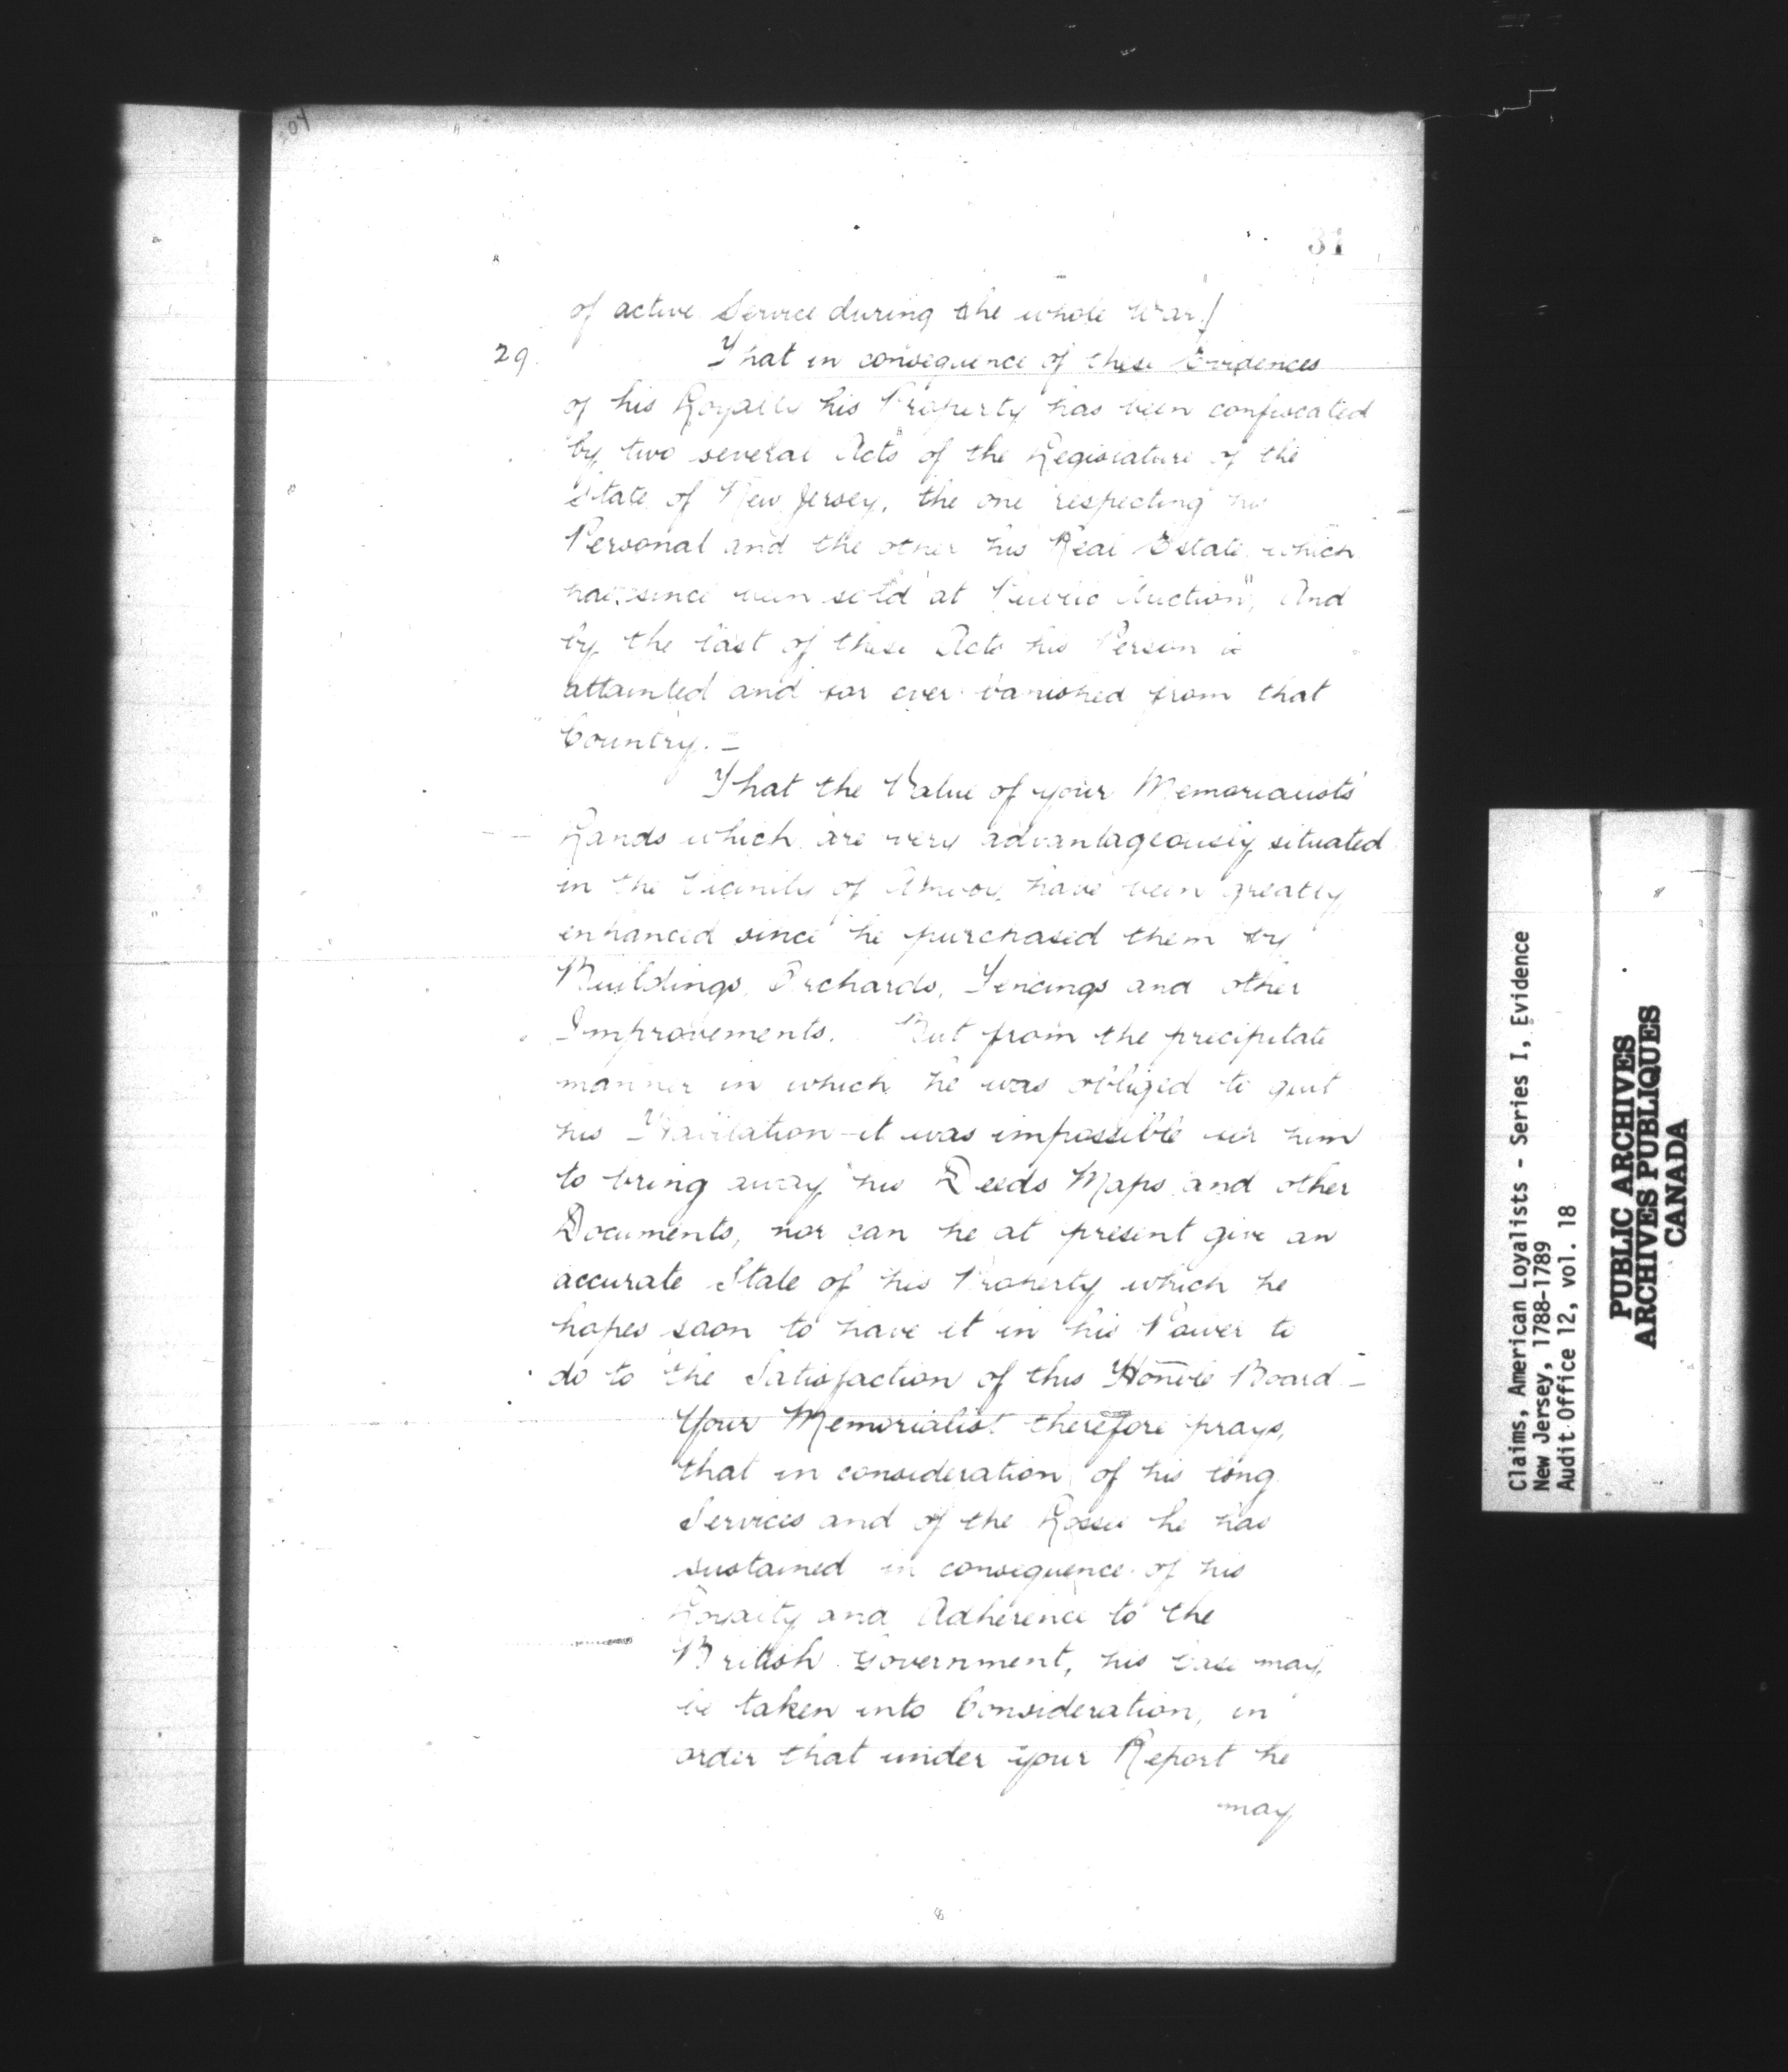 31
of active Service during the whole War /
29. That in consequence of these Evidences
of his Loyalty his Property has been confiscated
by two several Acts of the Legislature of the
State of New Jersey, the one respecting his
Personal and the other his Real Estate which
has since been sold at Public Auction, And
by the last of these Acts his Person is
attainted and for ever banished from that
Country. —
That the Value of your Memorialists'
Lands which are very advantageously situated
in the Vicinity of Amboy, have been greatly
enhanced since he purchased them by
Buildings, Orchards, Fencings and other
Improvements. But from the precipitate
manner in which he was obliged to quit
his Habitation it was impossible for him
to bring away his Deeds Maps and other
Documents, nor can he at present give an
accurate State of his Property which he
hopes soon to have it in his Power to
do to the Satisfaction of this Honble Board —
Your Memorialist therefore prays,
that in consideration of his long
Services and of the Losses he has
sustained in consequence of his
Loyalty and Adherence to the
British Government, his Case may
be taken into Consideration, in
order that under your Report he
may
Claims, American Loyalists - Series I, Evidence
New Jersey, 1788-1789
Audit Office 12, vol. 18
PUBLIC ARCHIVES
ARCHIVES PUBLIQUES
CANADA